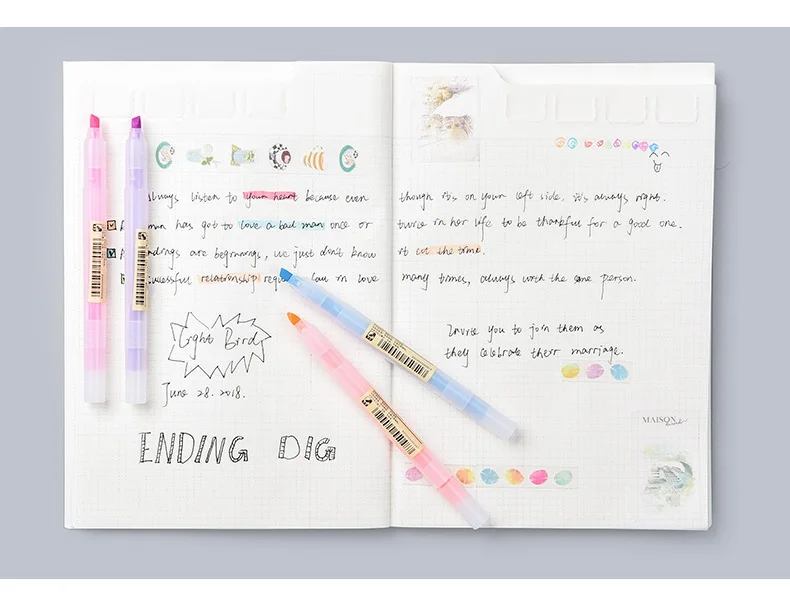 always listen to your heart because even
man has got to love a bad man once or
ndings are beginnings, we just don't know
uccessful relationship requ fall in love
Light Bird
June 28. 2018.
ENDING DIG
though it's on your left side, it's always right.
twice in her life to be thankful for a good one.
it at the time.
many times, always with the same person.
Invite you to join them as
they celebrate their marriage.
MAISON